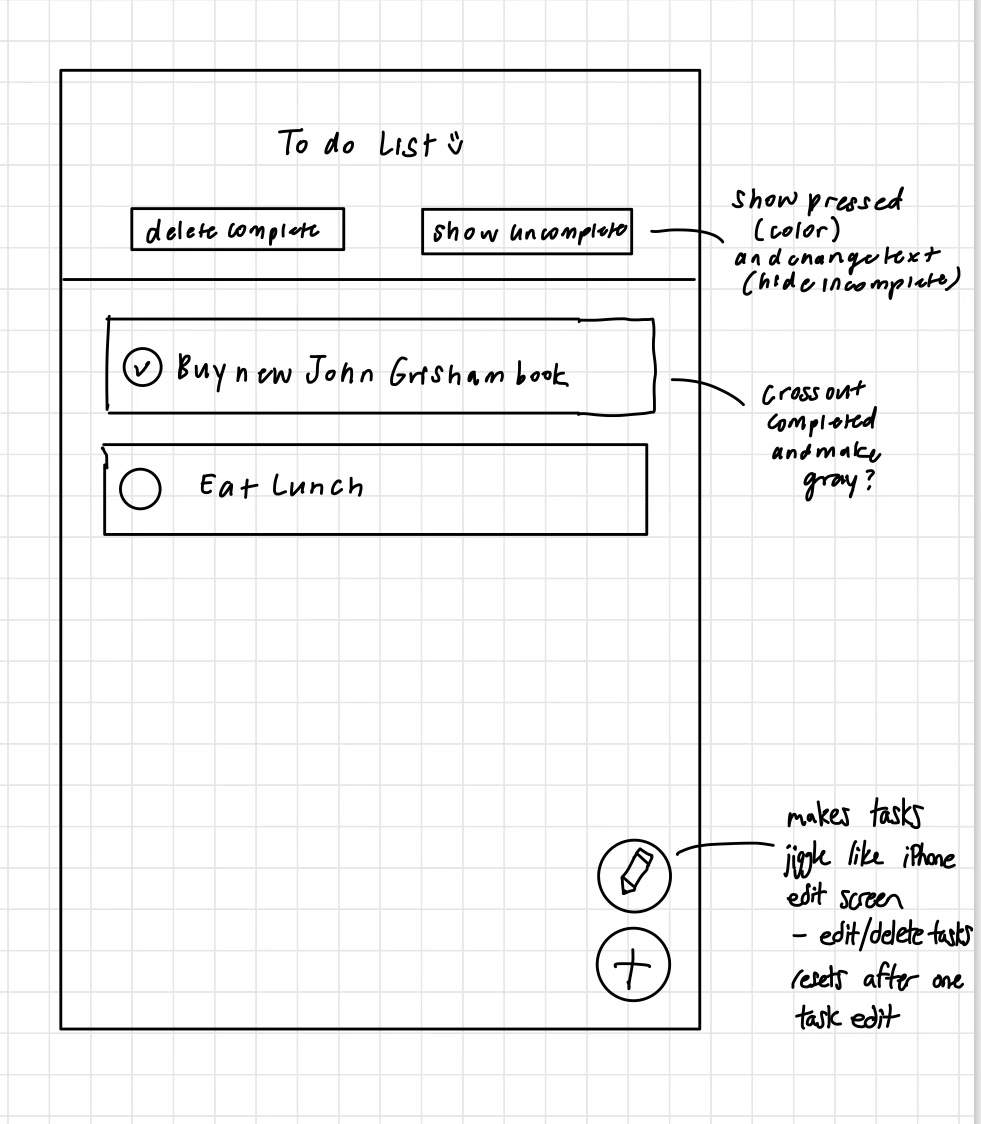 To do List
delete complete
show uncomplete
show pressed
(color)
and change text
(hide incomplete)
Buy new John Grisham book
Cross out
completed
and make
gray?
Eat Lunch
makes tasks
jiggle like iPhone
edit screen
- edit/delete tasks
resets after one
task edit